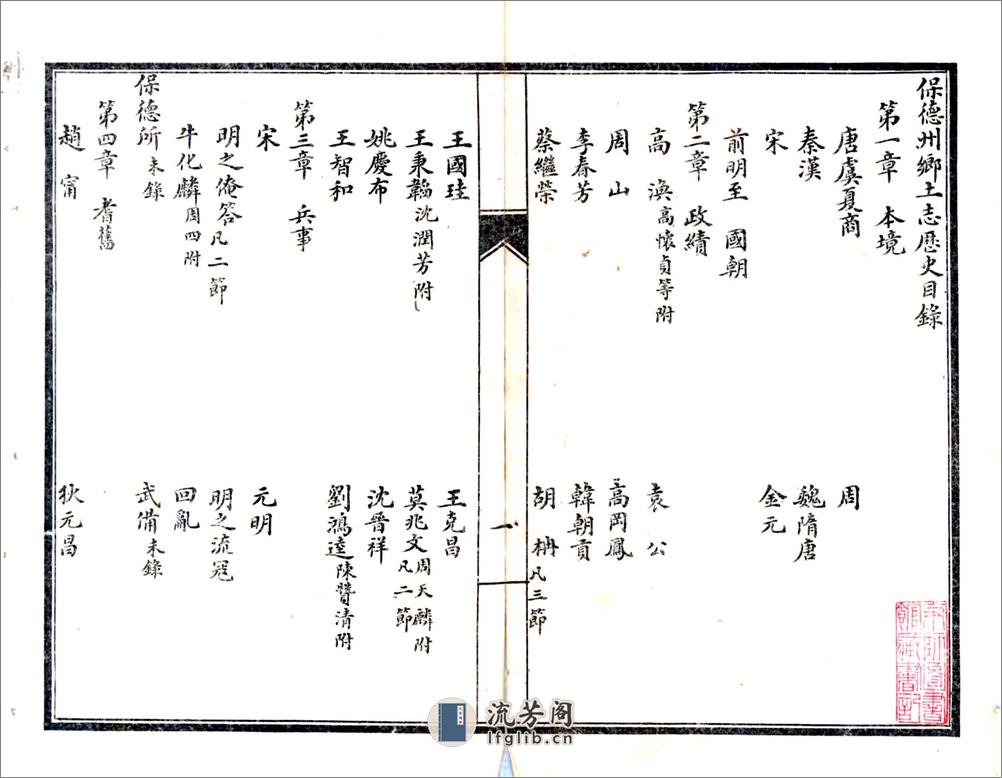 保德州鄉土志歷史目錄
第一章 本境
唐虞夏商 周
秦漢 魏隋唐
宋 金元
前明至 國朝
第二章 政績
高 渙高懷貞等附 袁 公
周 山 王高岡鳳
李春芳 韓朝貢
蔡繼榮 胡 柟凡三節
一
王國珪 王克昌
王秉韜沈潤芳附 莫兆文周天麟附凡二節
姚慶布 沈晉祥
王智和 劉鴻逵陳贊清附
第三章 兵事
宋 元明
明之俺答凡二節 明之流冦
牛化麟周四附 回亂
保德所未錄 武備未錄
第四章 耆舊
趙 甯 狄元昌
流芳阁
lfglib.cn